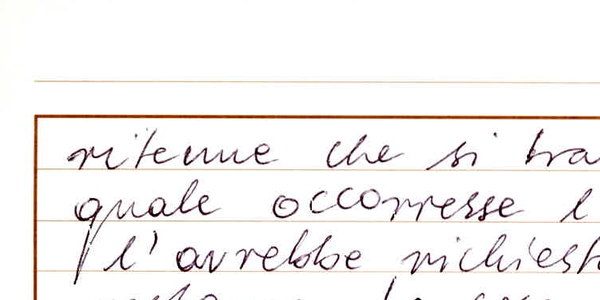 ritenne che si tra
quale occorresse l
l'avrebbe richiest